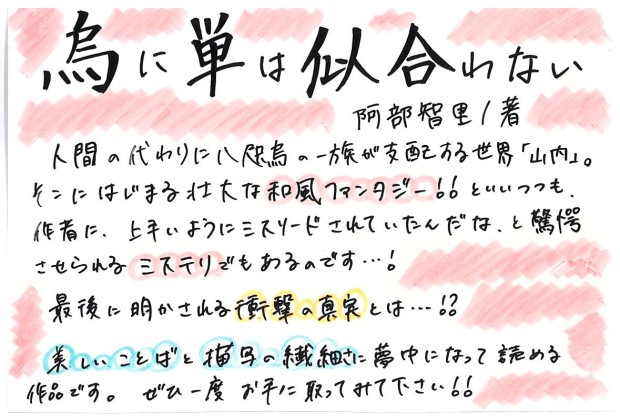 烏に単は似合わない
阿部智里/著
人間の代わりに八咫烏の一族が支配する世界「山内」。
そこにはじまる壮大な和風ファンタジー!!といいつつも、
作者に、上手いようにミスリードされていたんだな、と驚愕
させられるミステリでもあるのです…!
最後に明かされる衝撃の真実とは…!?
美しいことばと描写の繊細さに夢中になって読める
作品です。ぜひ一度お手に取ってみて下さい!!